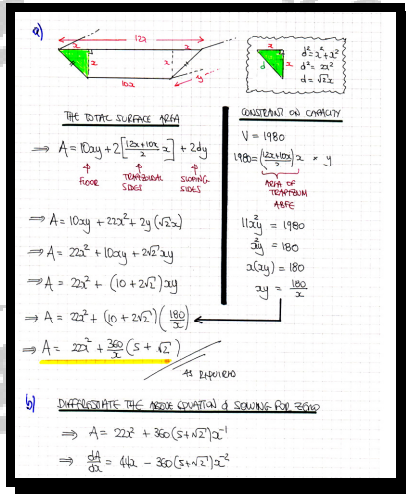 a)
12x
x
x
x
x
10x
y
x
x
d
d² = x² + x²
d² = 2x²
d = √2x
THE TOTAL SURFACE AREA
⇒ A = 10xy + 2[(12x+10x)/2 x] + 2dy
FLOOR
TRAPEZOIDAL SIDES
SLOPING SIDES
⇒ A = 10xy + 22x² + 2y(√2x)
⇒ A = 22x² + 10xy + 2√2xy
⇒ A = 22x² + (10 + 2√2)xy
⇒ A = 22x² + (10 + 2√2)(180/x)
⇒ A = 22x² + 360/x (5 + √2)
AS REQUIRED
CONSTRAINT ON CAPACITY
V = 1980
1980 = ((12x+10x)/2)x × y
AREA OF
TRAPEZIUM
ABFE
11x²y = 1980
x²y = 180
x(xy) = 180
xy = 180/x
b) DIFFERENTIATE THE ABOVE EQUATION & SOLVING FOR ZERO
⇒ A = 22x² + 360(5+√2)x⁻¹
⇒ dA/dx = 44x − 360(5+√2)x⁻²